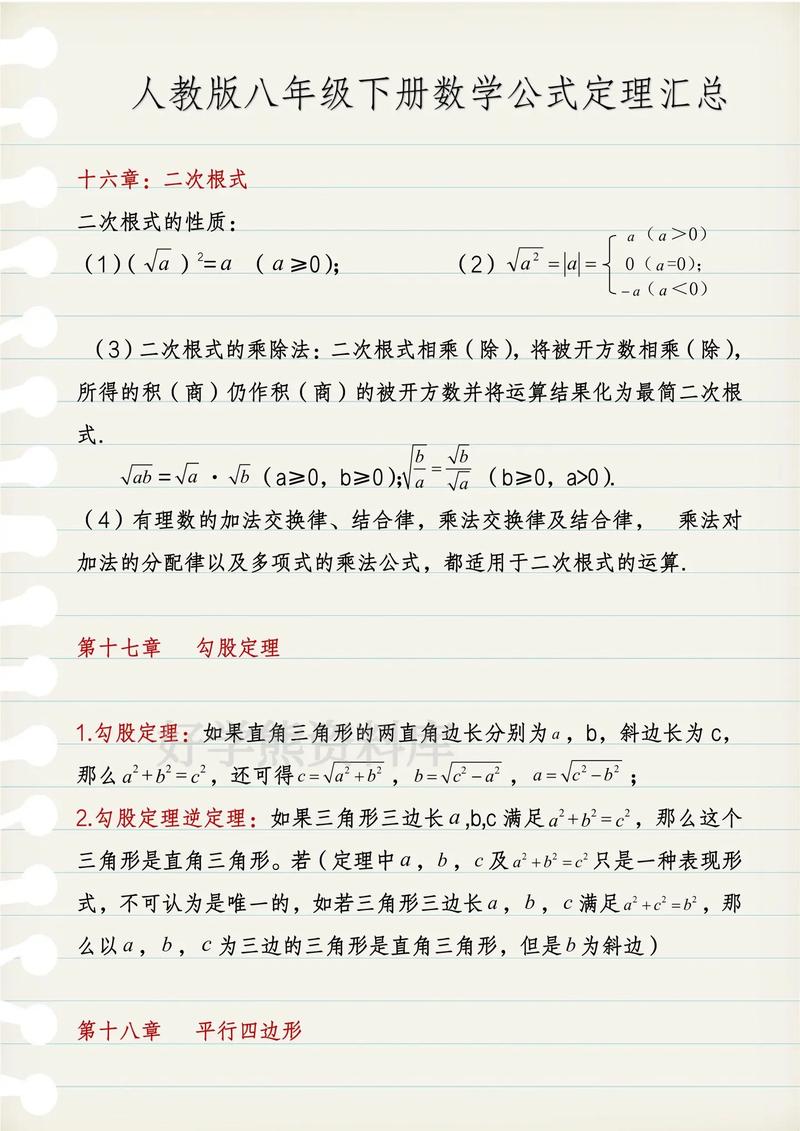 人教版八年级下册数学公式定理汇总
十六章：二次根式
二次根式的性质：
（1）(√a)²=a （a≥0）； （2）√a² =|a|= { a（a＞0） 0（a=0）； －a（a＜0）
（3）二次根式的乘除法：二次根式相乘（除），将被开方数相乘（除），
所得的积（商）仍作积（商）的被开方数并将运算结果化为最简二次根
式.
√ab=√a · √b（a≥0，b≥0）；√(b/a)=√b/√a（b≥0，a>0）.
（4）有理数的加法交换律、结合律，乘法交换律及结合律， 乘法对
加法的分配律以及多项式的乘法公式，都适用于二次根式的运算.
第十七章 勾股定理
1.勾股定理：如果直角三角形的两直角边长分别为a，b，斜边长为 c，
好学熊资料库
那么a²+b²=c²，还可得c=√(a²+b²)，b=√(c²－a²)，a=√(c²－b²)；
2.勾股定理逆定理：如果三角形三边长a,b,c 满足a²+b²=c²，那么这个
三角形是直角三角形。若（定理中a，b，c及a²+b²=c²只是一种表现形
式，不可认为是唯一的，如若三角形三边长a，b，c满足a²+c²=b²，那
么以a，b，c为三边的三角形是直角三角形，但是b为斜边）
第十八章 平行四边形